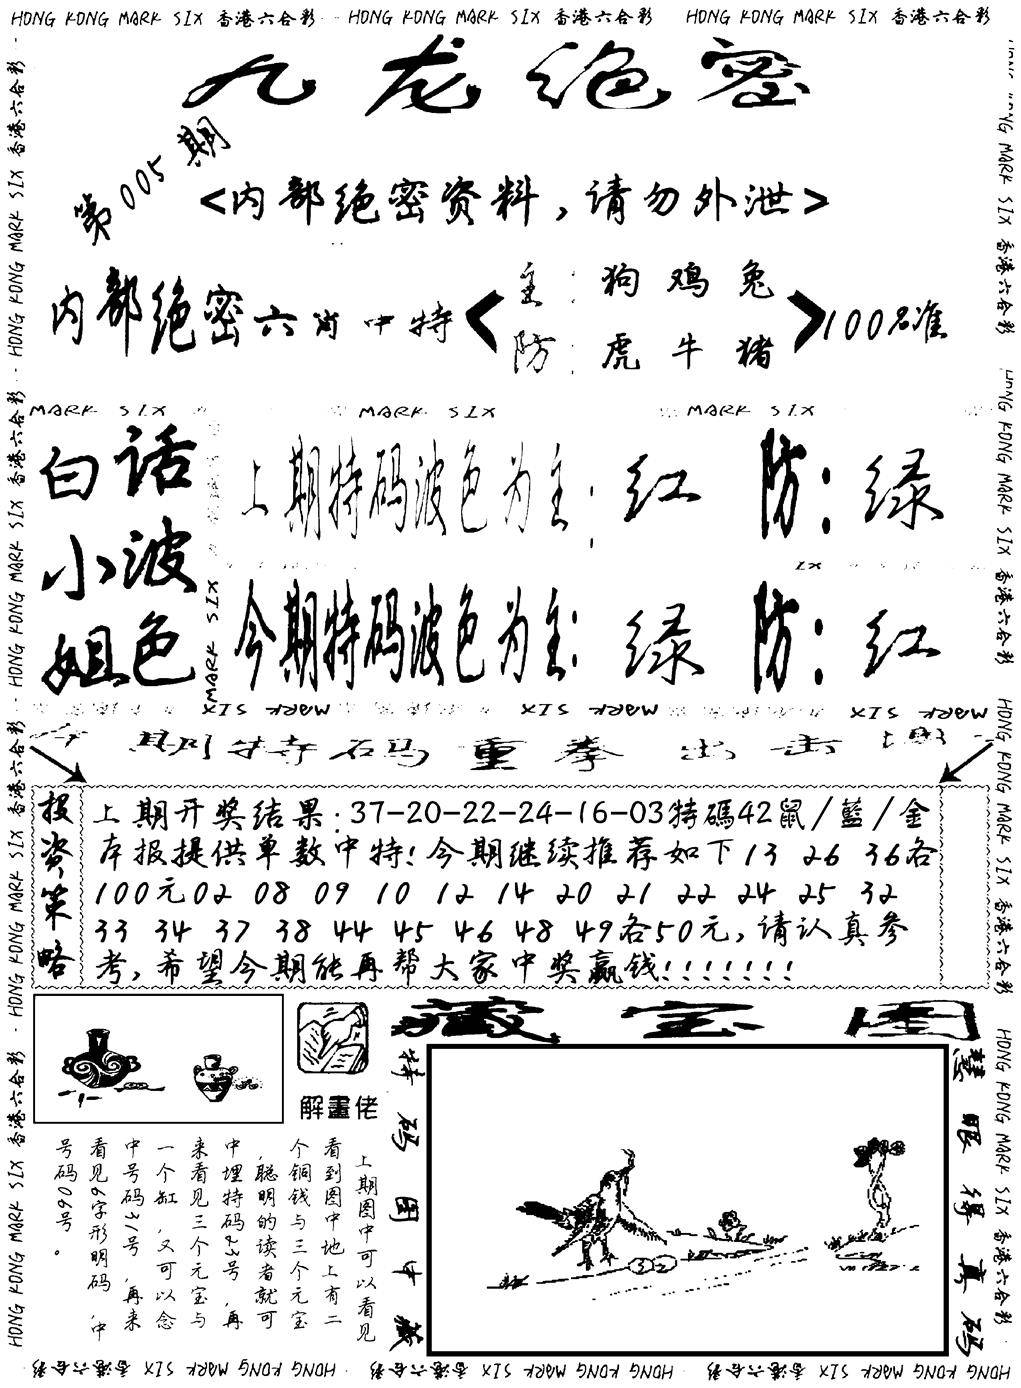 HONG KONG MARK SIX 香港六合彩 HONG KONG MARK SIX 香港六合彩 HONG KONG MARK SIX 香港六合彩
九龙绝密
第005期
<内部绝密资料,请勿外泄>
内部绝密六肖中特
主:狗鸡兔
防:虎牛猪
100%准
MARK SIX MARK SIX MARK SIX
白小姐
话波色
上期特码波色为主:红 防:绿
今期特码波色为主:绿 防:红
MARK SIX
MARK SIX MARK SIX MARK SIX
今期特码重拳出击
投资策略
上期开奖结果:37-20-22-24-16-03特碼42鼠/藍/金
本报提供单数中特!今期继续推荐如下13 26 36各
100元02 08 09 10 12 14 20 21 22 24 25 32
33 34 37 38 44 45 46 48 49各50元,请认真参
考,希望今期能再帮大家中奖赢钱!!!!!!!
解畫佬
上期图中可以看见
看到图中地上有二
个铜钱与三个元宝
,聪明的读者就可
中埋特码23号,再
来看见三个元宝与
一个缸,又可以念
中号码31号,再来
看见6字形明码,中
号码06号。
藏宝图
特码图中藏
慧眼得真码
32
HONG KONG MARK SIX 香港六合彩 HONG KONG MARK SIX 香港六合彩 HONG KONG MARK SIX 香港六合彩